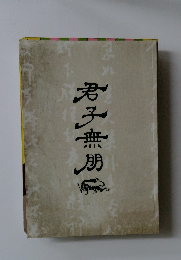 君子無朋